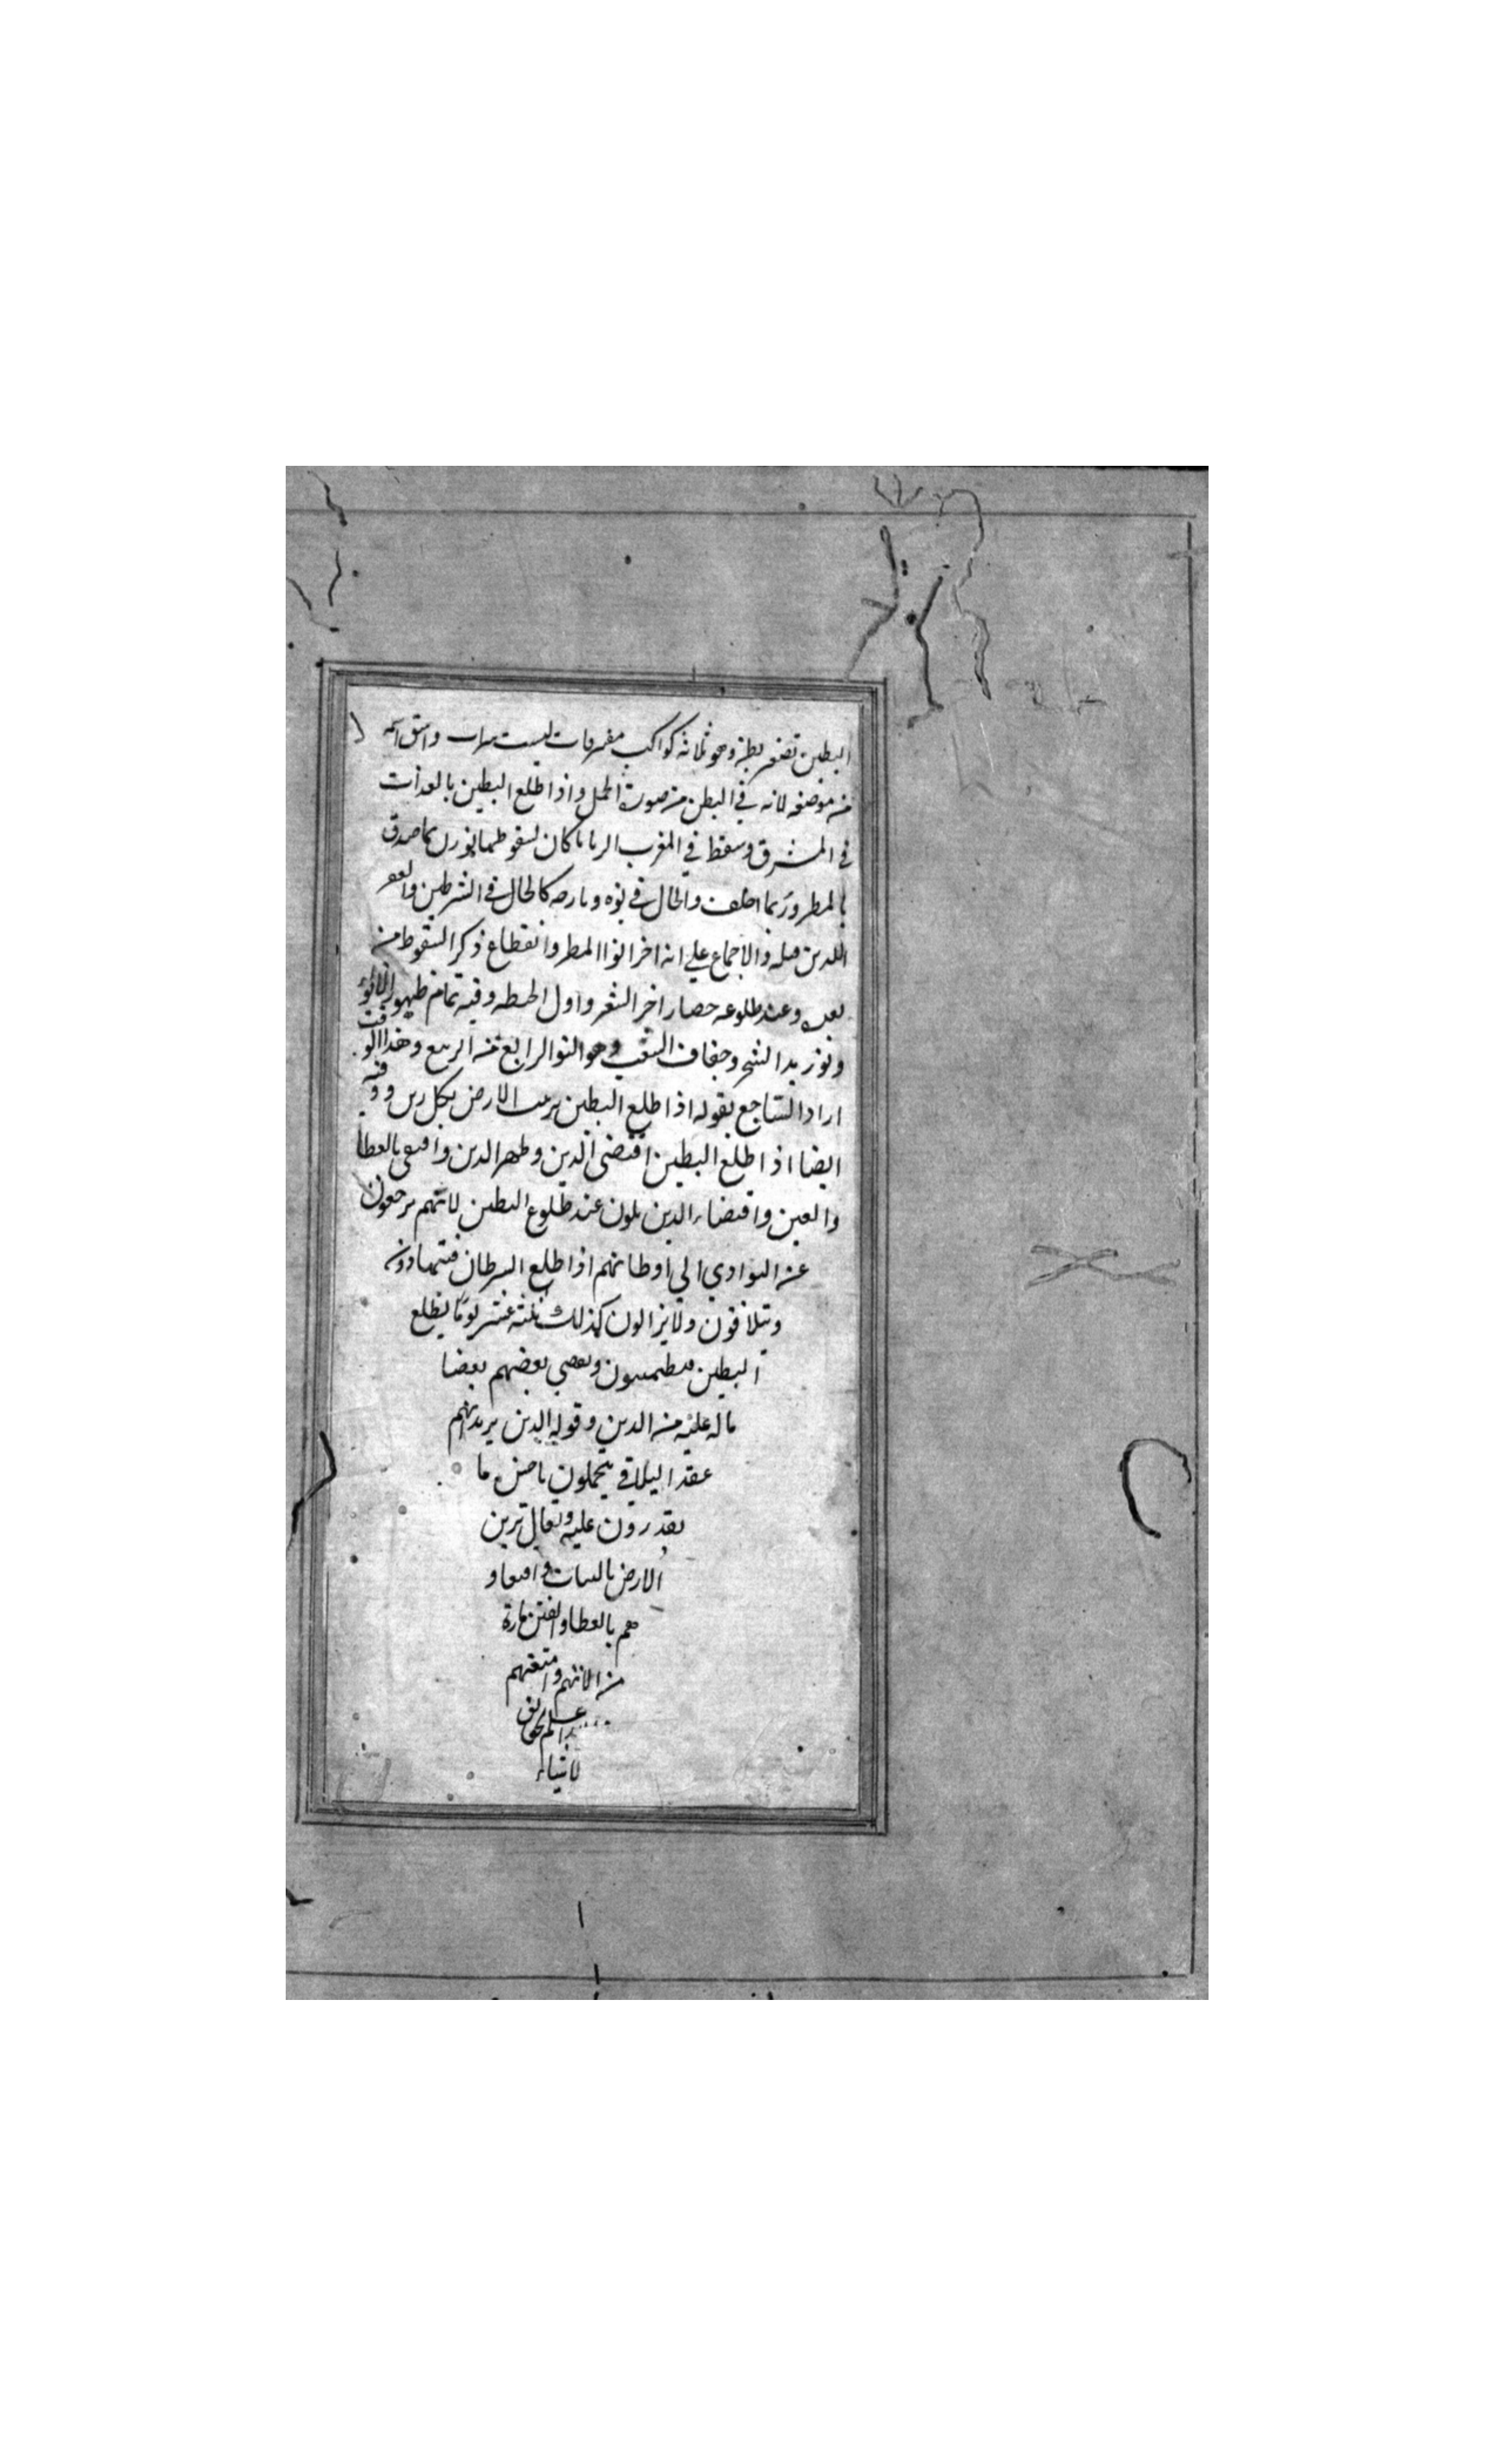 البطين تصغير بطن وهو ثلاثة كواكب مفترقات ليست واشتق اسمه
من موضعه لانه في البطن من صورة الحمل واذا طلع البطين بالغدات
في المشرق وسقط في المغرب الزبانا كان لسقوطهما نو ربما صدق
بالمطر وربما اخلف والحال في نوه وبارحه كالحال في الشرطين والغفر
اللذين قبله والاجماع علي انه اخر انوا المطر وانقطاع ذكر السقوط من
بعده وعند طلوعه حصار اخر الشعير واول الحنطه وفيه تمام ظهور
ونور الشجر وجفاف العشب وهو النو الرابع من الربيع وهذا الوقت
اراد الساجع بقوله اذا طلع البطين الارض بكل وفيه
ايضا اذا طلع البطين اقتضي الدين وظهر الدين واقتفي بالعطا
والعين واقتضاء الدين يكون عند طلوع البطين لانهم يرجعون
عن البوادي الي اوطانهم اذا طلع السرطان فيتهادون
ويتلاقون ولا يزالون كذلك ثلثة عشر يوما ليطلع
البطين فيطمئنون ويقضي بعضهم بعضا
ما له عليه من الدين وقوله الدين يريد انهم
عند التلاقي يتجملون باحسن ما
يقدرون عليه ويقال تزين
الارض بالنبات واقتفاو
هم بالعطا والفتن
من الانهم وامتعتهم

لاشياء